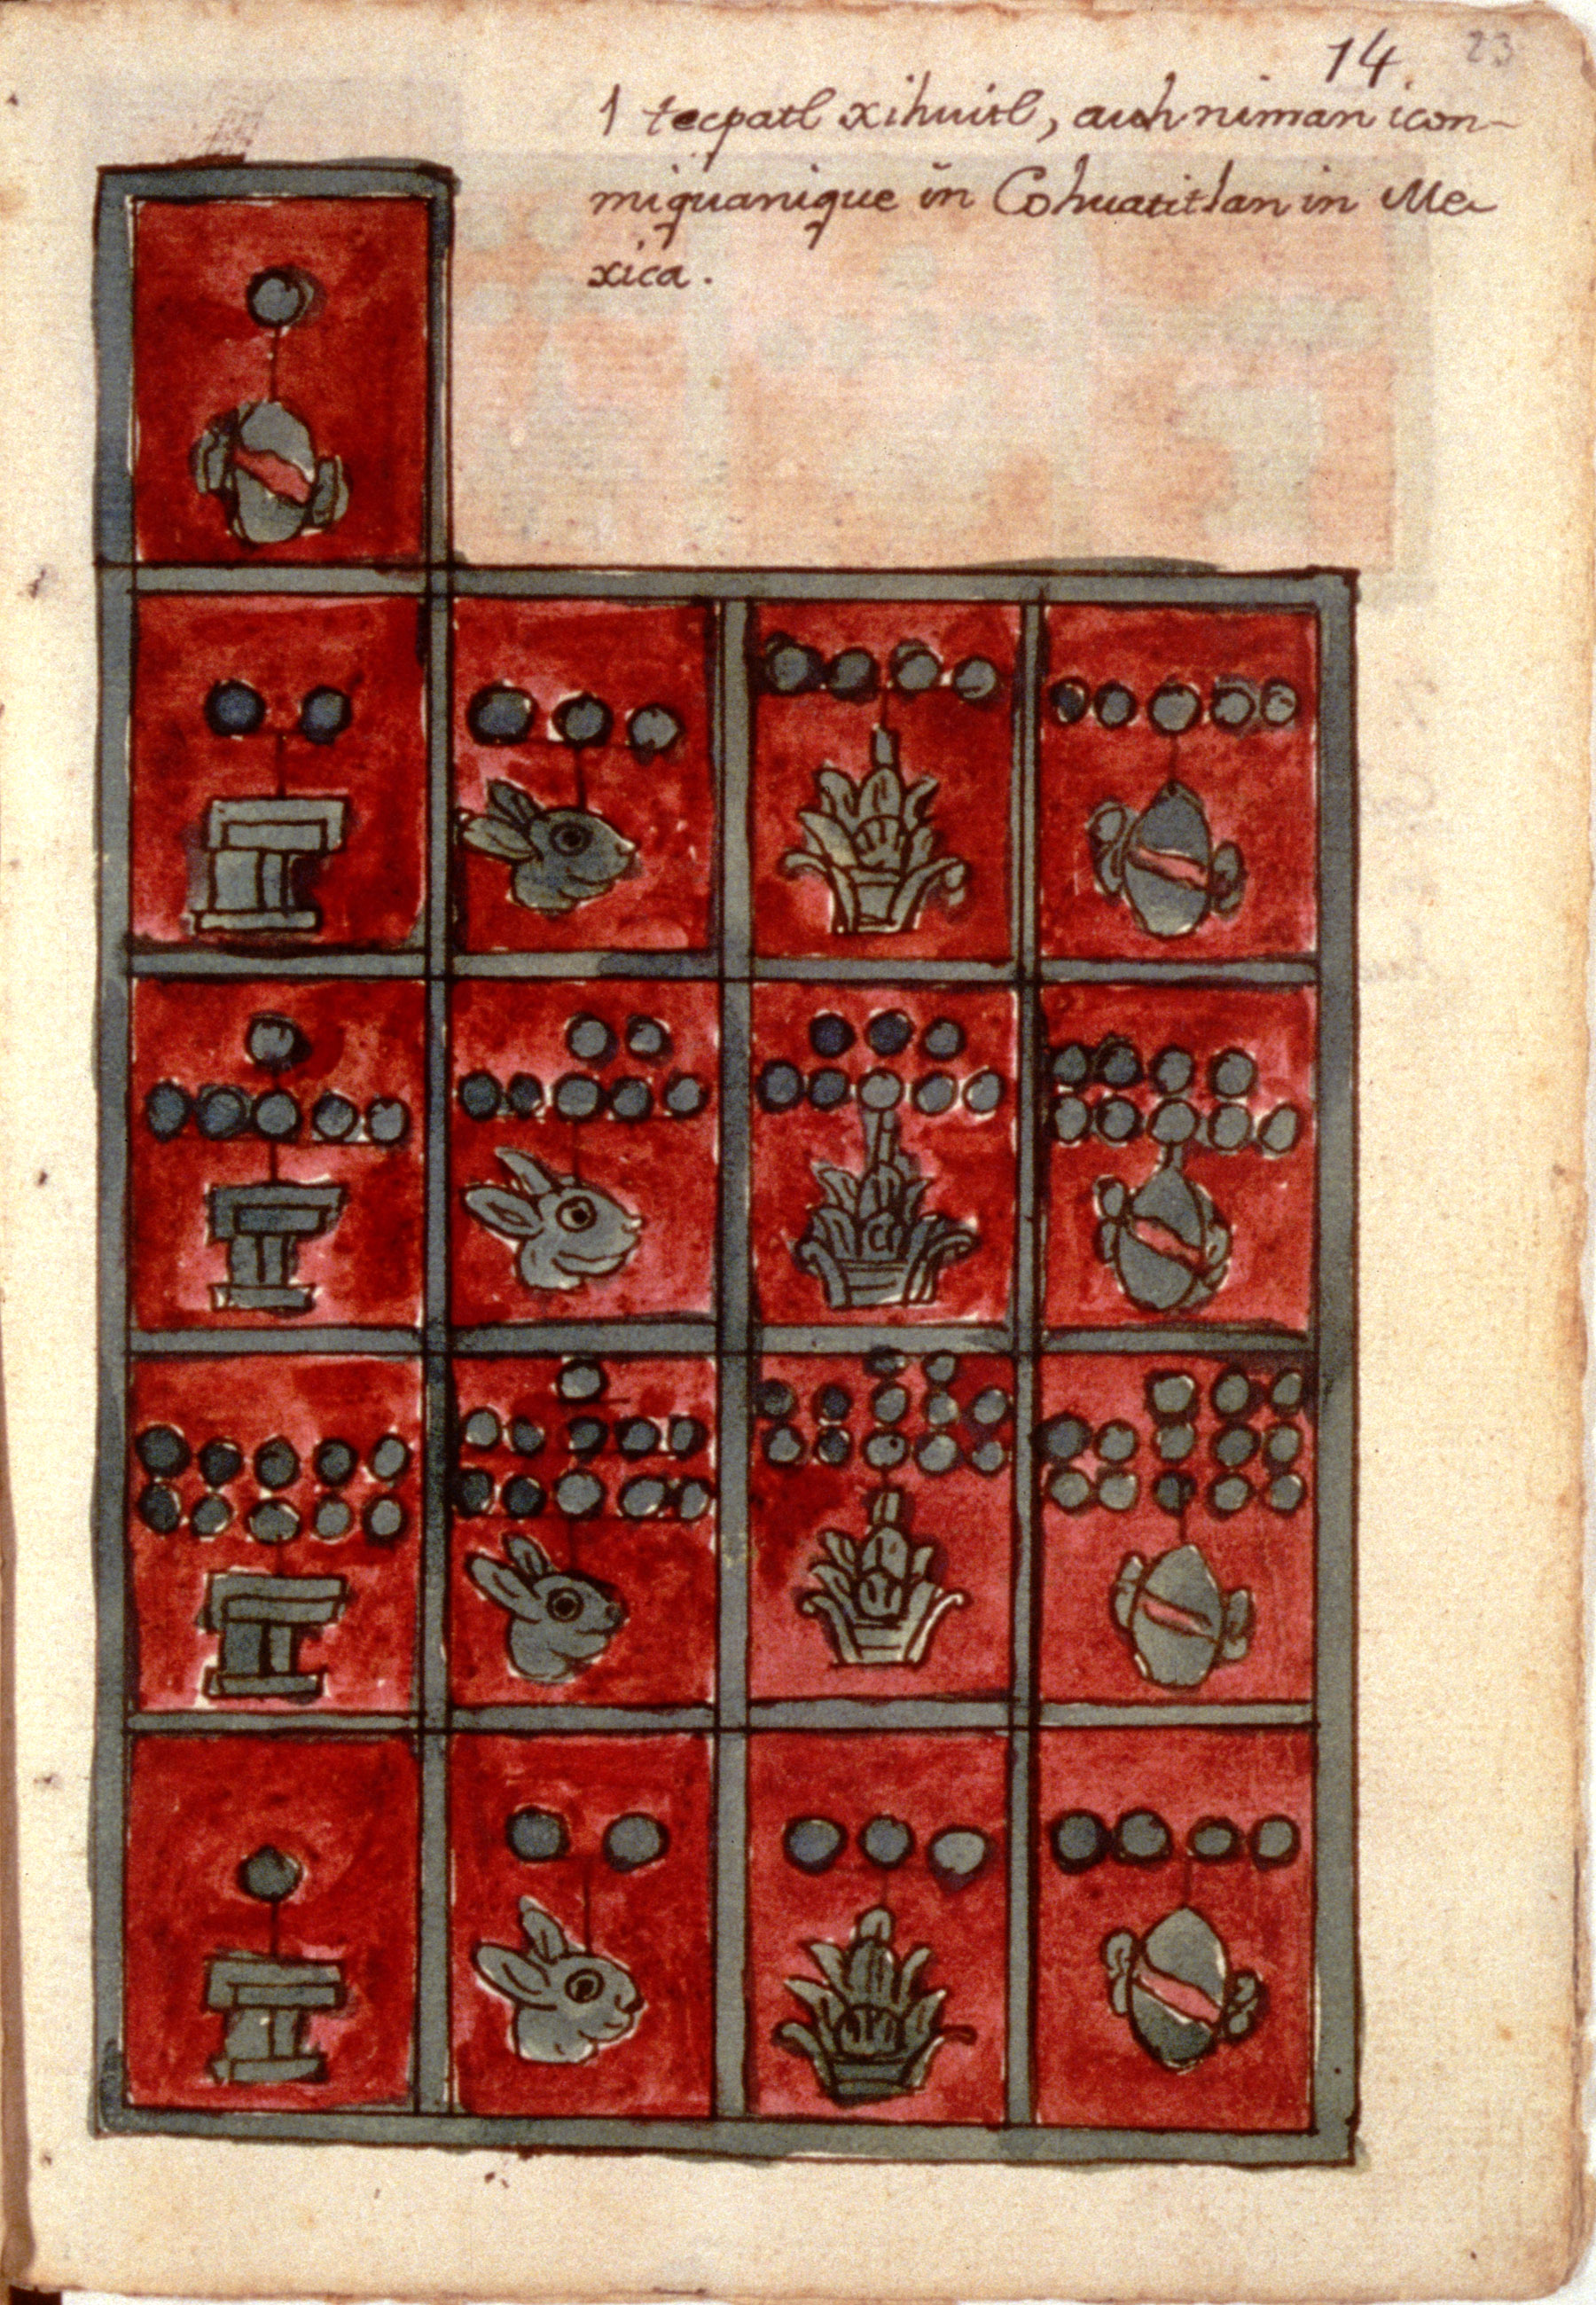 14 23
1 tecpatl xihuitl, auh niman icon-
miquanique in Cohuatitlan in Me-
xica.